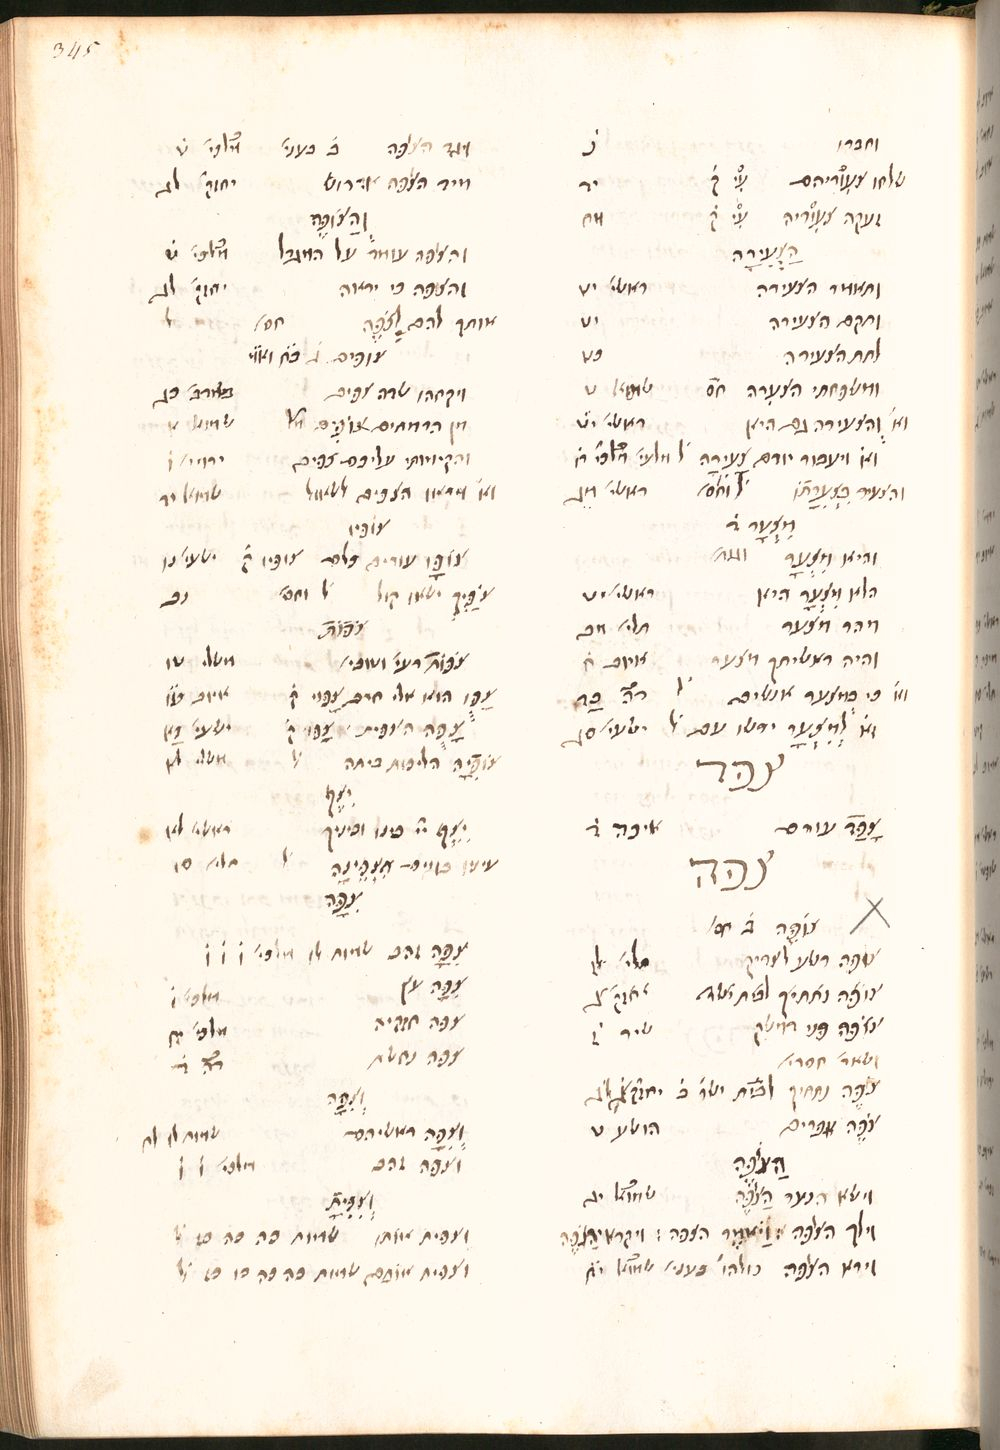 345
וחברו נ
שלחו צעוריהם ק יד
זעקה צעוריה ק מח
הַצְּעִירָה
ותאמר הצעירה ראשי׳ יט
ותקם הצעירה יט
לתת הצעירה כט
ומשפחתי הצעירה חס׳ שמוא׳ ט
וא׳ והצעירה גם היא ראשי׳ יט
וא׳ ויעבור יורם צָעִירָה ל׳
והצעיר כְּצִעֲרָתוֹ ל׳ וחס׳ ראשי׳ מג
מִצְעָר ב׳
והיא מִצְעָר
הלא מִצְעָר היא ראשי׳ יט
מהר מצער תלי׳ מב
והיה ראשיתך מצער איוב ח
וא׳ כי במצער אנשים ל׳
וא׳ לַמִּצְעָר ירשו עם ל׳ ישעי׳ סג
צפד
צָפַד עורם איכה ד
צפה
צוֹפֶה ב׳ חס׳
צופה רשע לצדיק תלי׳ לז
צופה נתתיך לבית ישר׳
צופה פני דמשק שיר ז
ושאר׳ חסרי׳
צֹפֶה נתתיך לבית ישר׳ יחזק׳ לג
צֹפֶה אפרים הושע ט
הַצֹּפֶה
וישא הנער הַצֹּפֶה שמוא׳ יג
וילך הצפה ויאמר הצפה : ויקרא הַצֹּפֶה
וירא הצפה כולהו׳ בעני׳ שמוא׳ יח
ויגד הצפה ב׳ בעני׳ מלכי׳ ט
מיד הצפה אדרוש יחזק׳ לג
וְהַצּוֹפֶה
והצפה עומד על המגדל מלכי׳ ט
והצפה כי יראה יחזק׳ לג
אותך להם לְצֹפֶה חס׳ ל׳
צופים
ויקחהו שדה צפים במדבר כג
מן הרמתים צוֹפִים שמוא׳ א
והקימותי עליכם צפים ירמי׳ ו
וא׳ ויראו הצפים לשאול שמוא׳ יד
צופיו
צוֹפָו עורים כלם צופיו ק׳ ישעי׳ נו
צֹפַיִךְ נשאו קול ל׳ וחס׳ נב
צֹפוֹת
צֹפוֹת רעי׳ וטובי׳ משלי טו
צָפוּ הוא אלי חרב צָפוּי ק׳ איוב טו
צָפֹה הצפית ישעי׳ כא
צוֹפִיָּה הליכות ביתה ל׳ משלי לא
יִצֶף
יִצֶף יי׳ ביני ובינך ראשי׳ לא
עיניו בגוים תִּצְפֶּינָה ל׳ תלי׳ סו
צִפָּה
צִפָּה זהב שמות לו מלכי׳ ו ו ו
צִפָּה עץ מלכי׳ ו
צפה חזקיה מלכי׳ יח
צפה נחשת
וְצִפָּה
וְצִפָּה ראשיהם שמות לו לח
וצפה זהב מלכי׳ ו ו
וְצִפִּיתָ
וצפית אותו שמות כה כה כו ל׳
וצפית אותם שמות כה כה כו כו ל׳